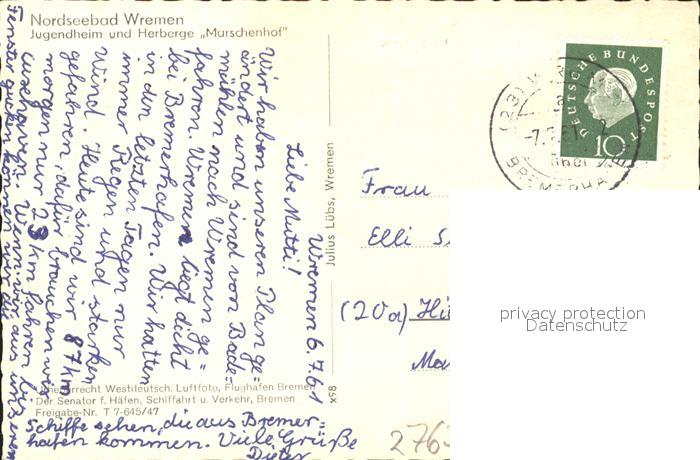 Nordseebad Wremen
Jugendheim und Herberge „Marschenhof"
Wremen 6.7.61
Liebe Mutti!
Wir haben unseren Plan ge=
ändert und sind von Bade=
mühlen nach Wremen ge=
fahren. Wremen liegt dicht
bei Bremerhafen. Wir hatten
in den letzten Tagen nur
immer Regen und starken
Wind. Heute sind wir 87 km
gefahren, dafür brauchen wir
morgen nur 23 km fahren bis
Cuxhaven. Wenn wir aus unserem
Fenster gucken können wir die
Schiffe sehen, die aus Bremer=
hafen kommen. Viele Grüße
Dieter
Urheberrecht Westdeutsch. Luftfoto, Flughafen Bremen
Der Senator f. Häfen, Schiffahrt u. Verkehr, Bremen
Freigabe-Nr. T 7-645/47
Julius Lübs, Wremen
x98
DEUTSCHE BUNDESPOST
10
(23)
-7.7.61
BREMERHA
Frau
Elli
(20a) Hi
Ma
276
privacy protection
Datenschutz